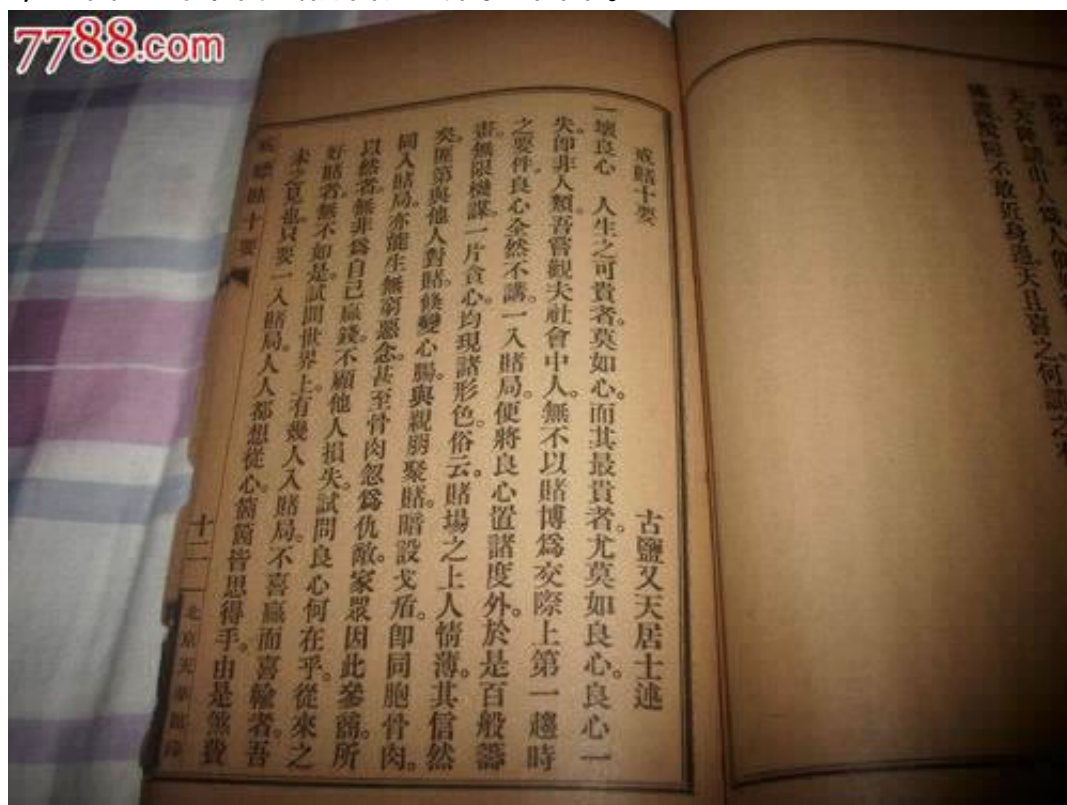 7788.com
天天降諸由人爲人
不敢近身過天且喜之何
戒賭十要
古鹽又天居士述
一壞良心 人生之可貴者。莫如心。而其最貴者。尤莫如良心。良心一
失。卽非人類。吾嘗觀夫社會中人。無不以賭博爲交際上第一趨時
之要件。良心全然不講。一入賭局。便將良心置諸度外。於是百般籌
畫。無限機謀。一片貪心。均現諸形色。俗云。賭場之上人情薄。其信然
矣。匪第與他人對賭。條變心腸。與親朋聚賭。暗設戈盾。卽同胞骨肉。
同入賭局。亦能生無窮惡念。甚至骨肉忽爲仇敵。家眾因此參商。所
以然者。無非爲自己贏錢。不顧他人損失。試問良心何在乎。從來之
好賭者。無不如是。試問世界上。有幾人入賭局。不喜贏而喜輸者。吾
未之見也。只要一入賭局。人人都想從心。箇箇皆思得手。由是煞費
戒 賭十要
十二
北京天華館